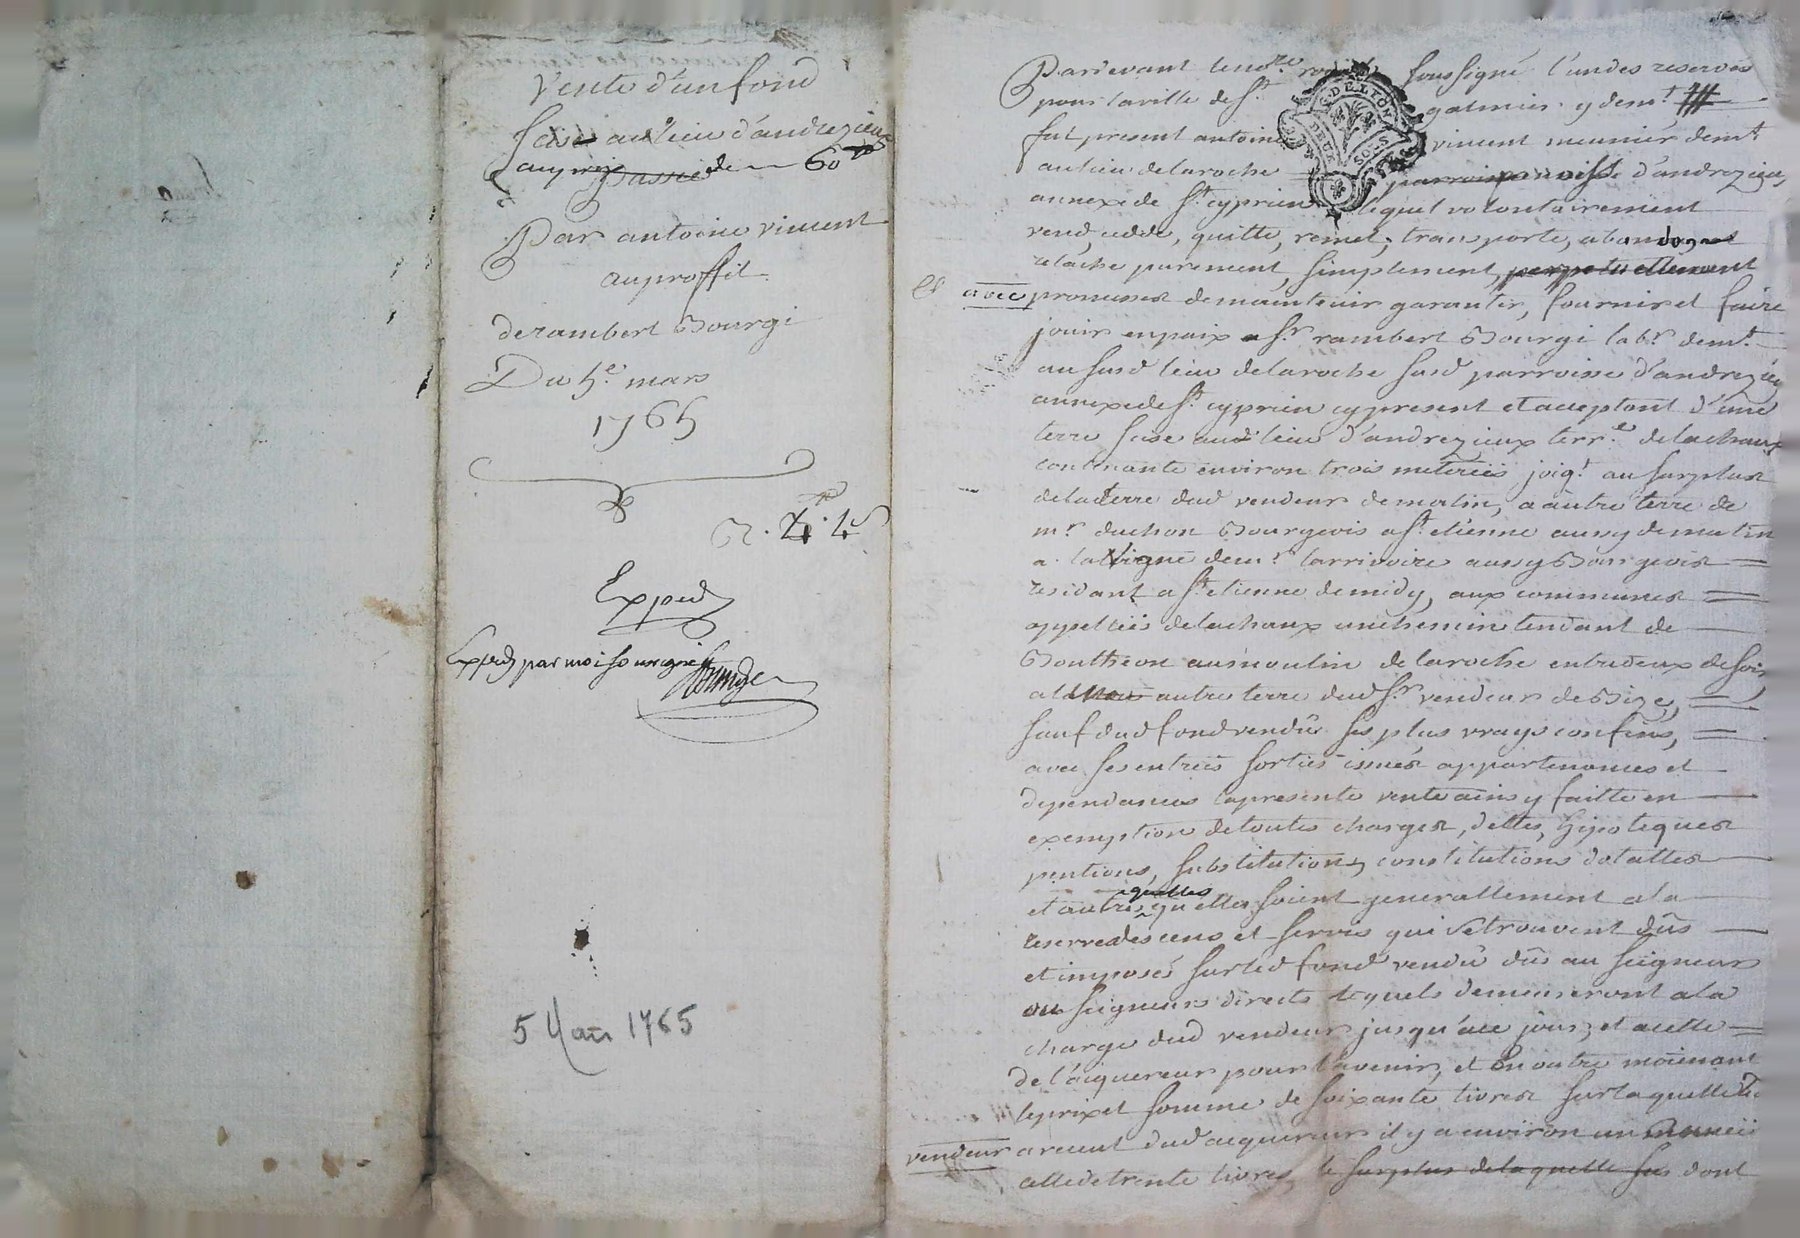 Vente d'un fond
sise audt lieu d'andrezieux
au prix passée de 60 ₶
Par antoine vincent
au proffit
de rambert Bourgi
Du 5e. mars
1765
Exped
Exped par moi sousigné
5 Mars 1765
G. DE LYON
DEUX SOLS
Pardevant le nore. royal soussigné l'un des reservés
pour la ville de St. galmier y demt
fut present antoine vincent meunier demt
au lieu de laroche parroisse d'andrezieux,
annexe de St. cyprien lequel volontairement
vend, cedde, quitte, remet, transporte, abandonne
relache purement, simplement, perpetuellement
et avec promesses de maintenir garantir, fournir et faire
jouir en paix a Sr. rambert Bourgi labr. demt.
au susd lieu de laroche susd parroisse d'andrezieux
annexe de St. cyprien cy present et acceptant d'une
terre sise audt lieu d'andrezieux terre. de lachaux
contenante environ trois meterées, joigt. au surplus
de la terre dud vendeur de matin, a autre terre de
mr. duchon Bourgeois a St. etienne aussy de matin
a la Vigne de mr. larrivoire aussy Bourgeois
residant a St. etienne de midy, aux communes
appellées de lachaux un chemin tendant de
Bouthéon au moulin de laroche entredeux de soir,
a autre terre dud Sr. vendeur de Bize,
sauf dud fond vendu ses plus vrays confins,
avec ses entrées sorties issues appartenances et
dependances la presente vente ainsy faitte en
exemption de toutes charges, dettes, hypoteques
pentions, substitutions, constitutions dotalles
et autres quelles qu'elles soient generallement a la
reserve des cens et servis qui se trouvent dûs
et imposés sur led fond vendu dûs au seigneur
ou seigneurs directs lequels demeureront a la
charge dud vendeur jusqu'a ce jour, et a celle
de l'aiquereur pour l'avenir, et en outre moiènant
le prix et somme de soixante livres sur laquelle le
vendeur a recut dud acquereur il y a environ un
celle de trente livres, le surplus de laquelle dont